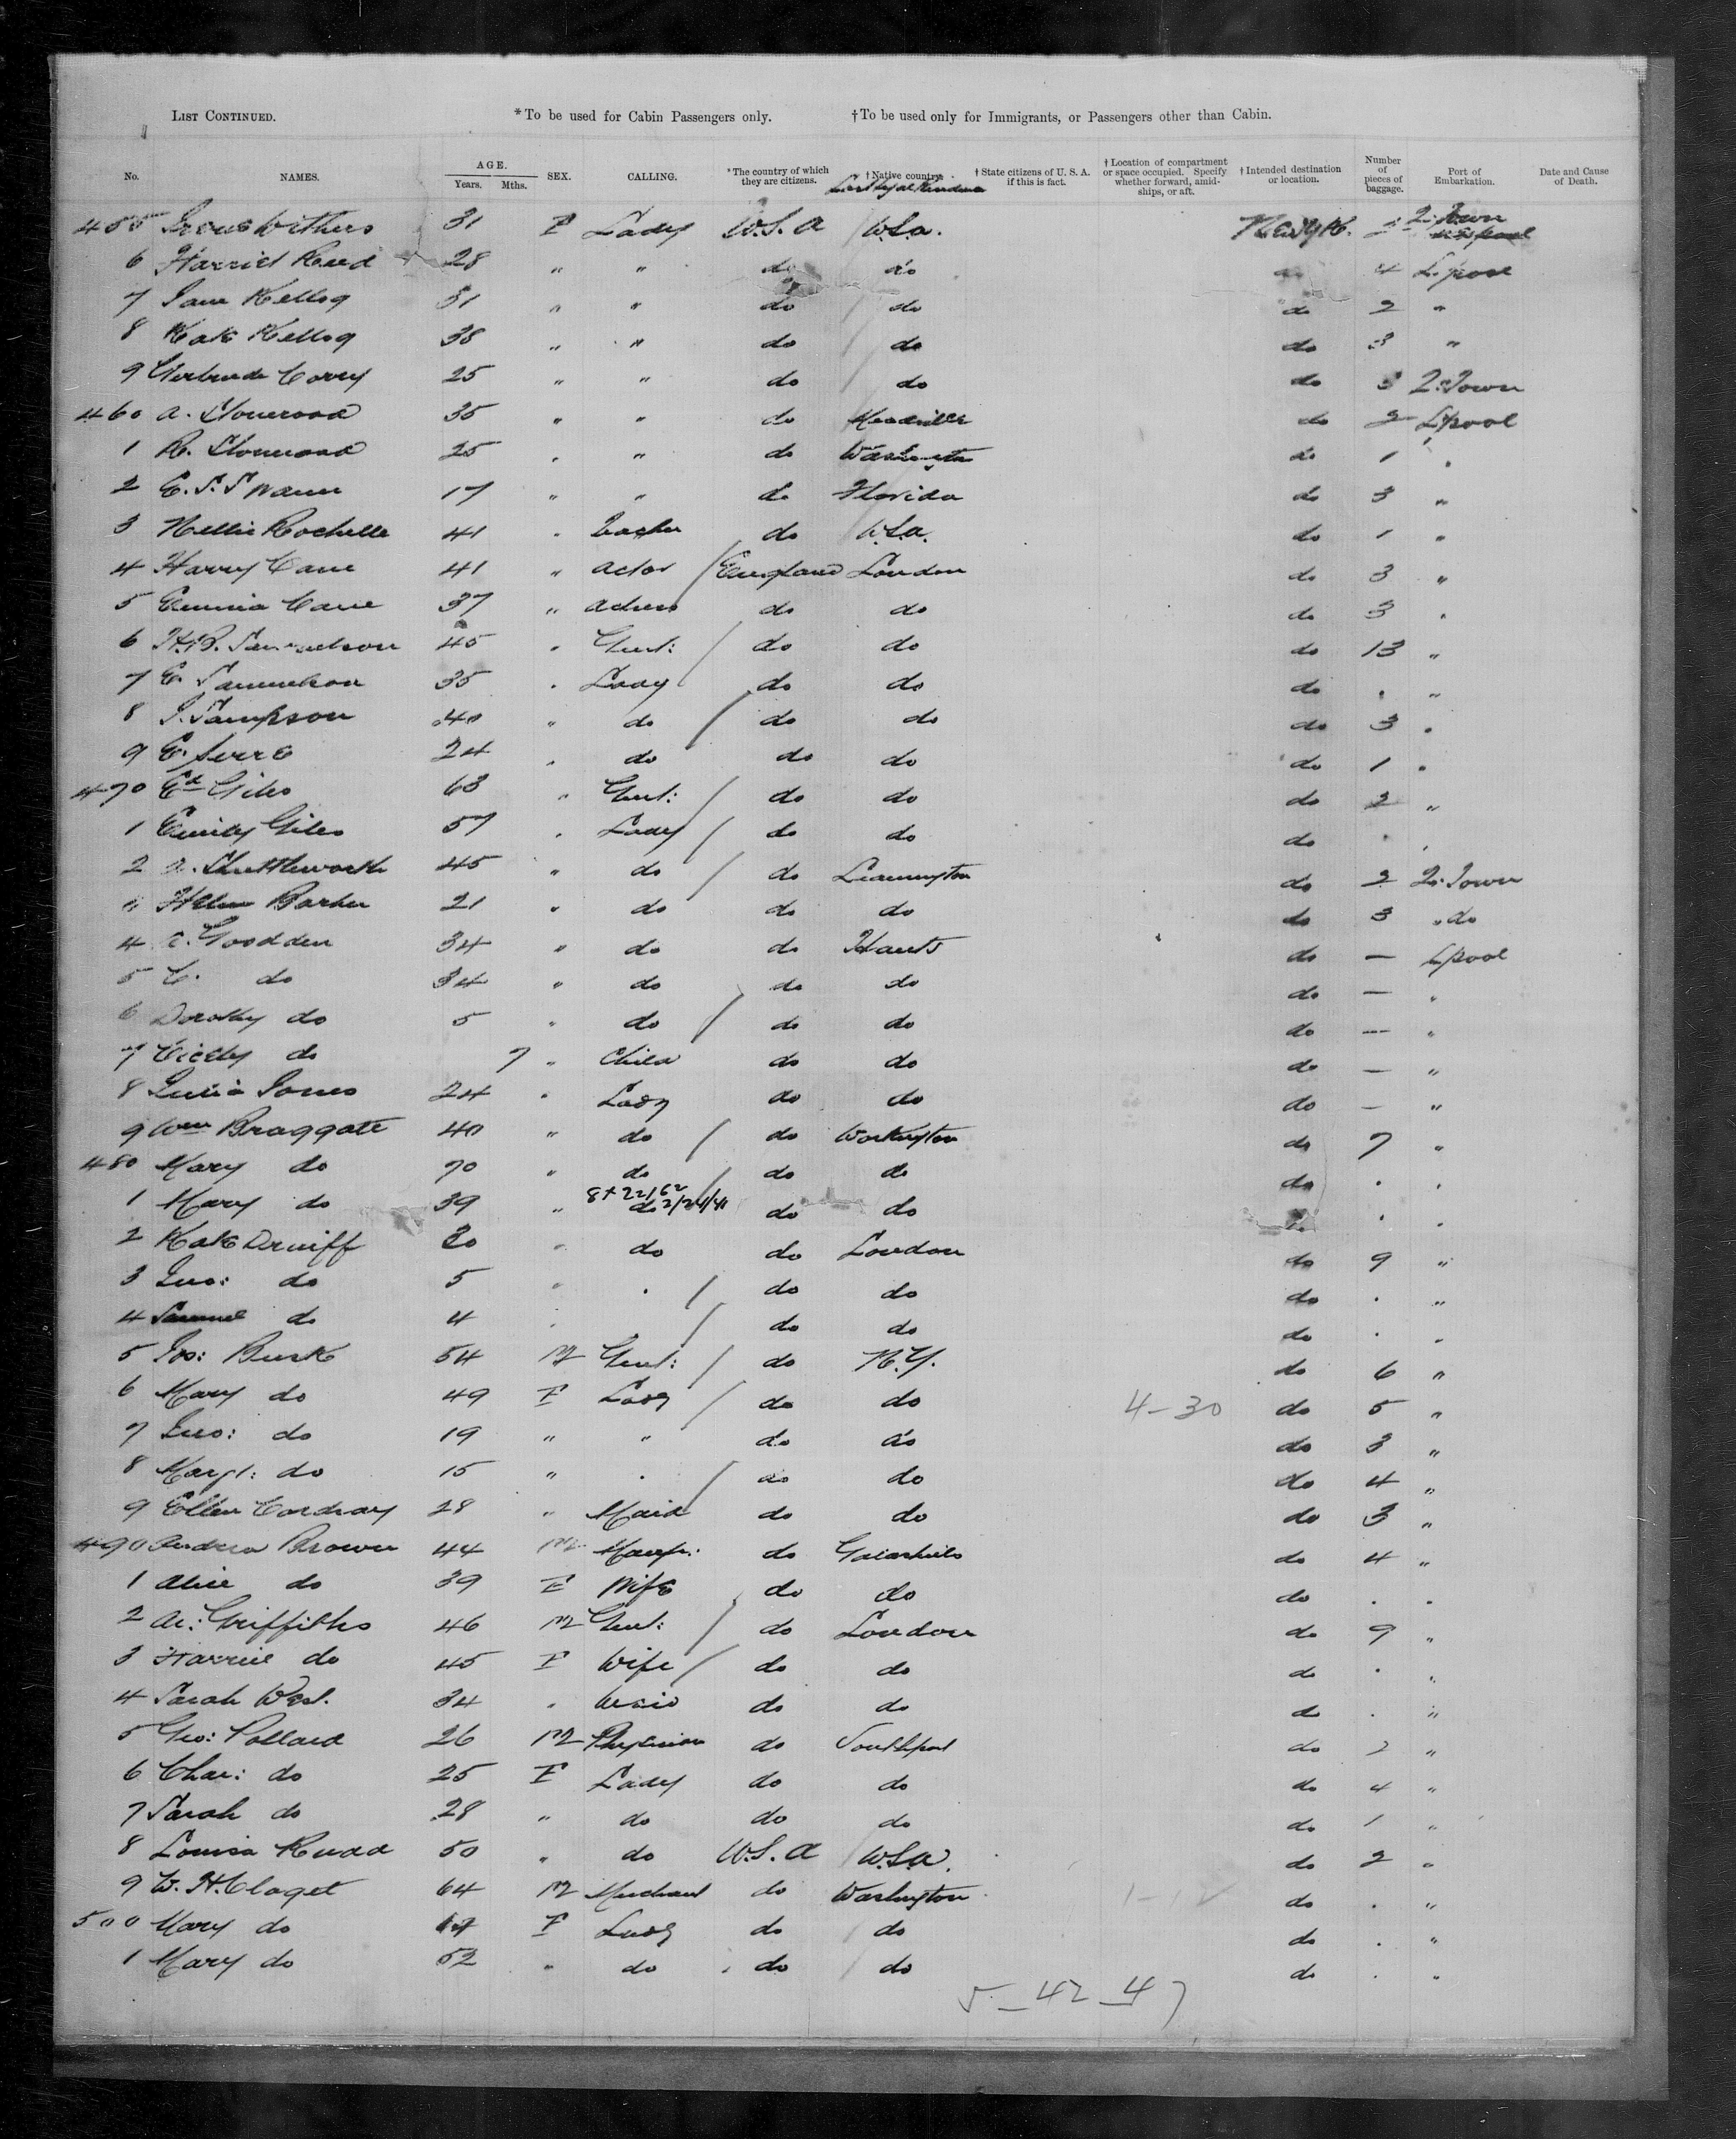 LIST CONTINUED. *To be used for Cabin Passengers only. †To be used only for Immigrants, or Passengers other than Cabin.
No. NAMES. AGE. Years. Mths. SEX. CALLING. *The country of which they are citizens. †Native country. †State citizens of U. S. A. if this is fact. †Location of compartment or space occupied. Specify whether forward, amidships, or aft. †Intended destination or location. Number of pieces of baggage. Port of Embarkation. Date and Cause of Death.
455 Withers 31 F Lady U.S.A U.S.a. Q:Town
6 Harriet Reed 28 " " do do 4 L'pool
7 Jane Kellog 31 " " do do do 2 "
8 Kate Kellog 38 " " do do do 3 "
9 Gertrude Corry 25 " " do do do 3 Q:Town
460 A. 35 " " do Meadville do 2 L'pool
1 R. 25 " " do Washington do 1 "
2 E. S. Spann 17 " " do Florida do 3 "
3 Nellie Rochelle 41 " do U.S.a. do 1 "
4 Harry Cane 41 " actor England London do 3 "
5 Emma Cane 37 " actress do do do 3 "
6 H.B. Samuelson 45 " Gent: do do do 13 "
7 E. Samuelson 35 " Lady do do do . "
8 J. Sampson 40 " do do do do 3 "
9 E. 24 " do do do do 1 "
470 Ed Giles 63 " Gent: do do do 2 "
1 Emily Giles 57 " Lady do do do . "
2 A. Shuttleworth 45 " do do Leamington do 2 Q:Town
" Helen Barker 21 " do do do do 3 " do
4 A. Goodden 34 " do do Hants do — L'pool
5 C. do 34 " do do do do — "
6 Dorothy do 5 " do do do do — "
7 Cicely do 7 " Child do do do — "
8 Jones 24 " Lady do do do — "
9 Wm Braggate 40 " do do Workington do 7 "
480 Mary do 70 " do do do do . "
1 Mary do 39 " do 2/24/41 do do .
2 Kate Druiff 30 " do do London do 9 "
3 do 5 " . do do do . "
4 Samuel do 4 do do do . "
5 Jos: Busk 54 M Gent: do N.Y. do 6 "
6 Mary do 49 F Lady do do 4-30 do 5 "
7 do 19 " " do do do 3 "
8 Margt: do 15 " . do do do 4 "
9 Ellen Cordray 28 " Maid do do do 3 "
490 Andrew Brown 44 M Manfr: do Galashiels do 4 "
1 Alice do 39 F Wife do do do . .
2 Ar: Griffiths 46 M Gent: do London do 9 "
3 Harriet do 45 F Wife do do do . "
4 Sarah West. 34 " Maid do do do . "
5 Geo: Pollard 26 M Physician do Southport do 2 "
6 Char: do 25 F Lady do do do 4 "
7 Sarah do 28 " do do do do 1 "
8 Louisa Rudd 50 " do U.S.A U.S.a. do 2 "
9 W. H. Claget 64 M Merchant do Washington do . "
500 Mary do F Lady do do do . "
1 Mary do 52 " do do do do . "
5-42-47